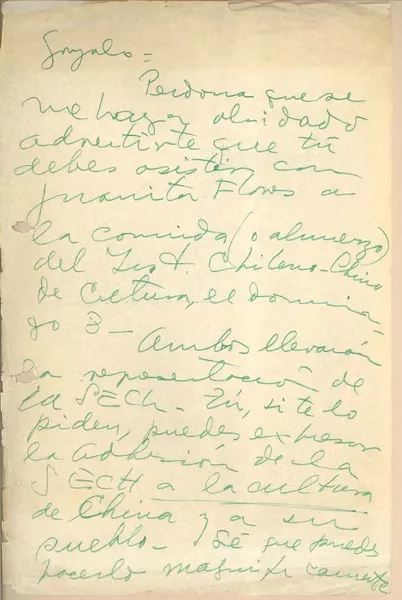 Gonzalo =
Perdona que se
me haya olvidado
advertirte que tú
debes asistir con
Juanita Flores a
la comida (o almuerzo)
del Inst. Chileno-Chino
de Cultura, el domin-
go 3 - Ambos llevarán
la representación de
la SECh. Tú, si te lo
piden, puedes expresar
la adhesión de la
SECH a la cultura
de China y a su
pueblo - Sé que puedes
hacerlo magníficamente